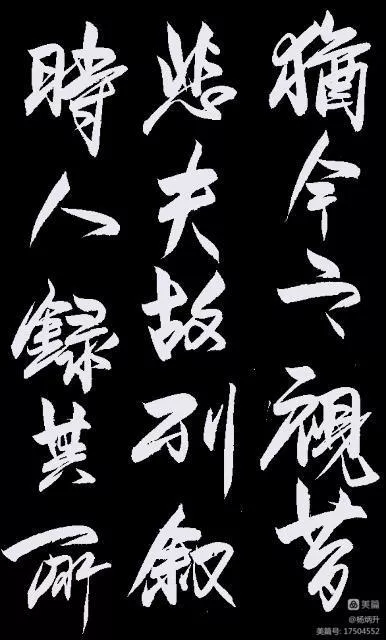 猶今之視昔
悲夫故列叙
時人録其所
美篇
@杨炳升
美篇号: 17504552